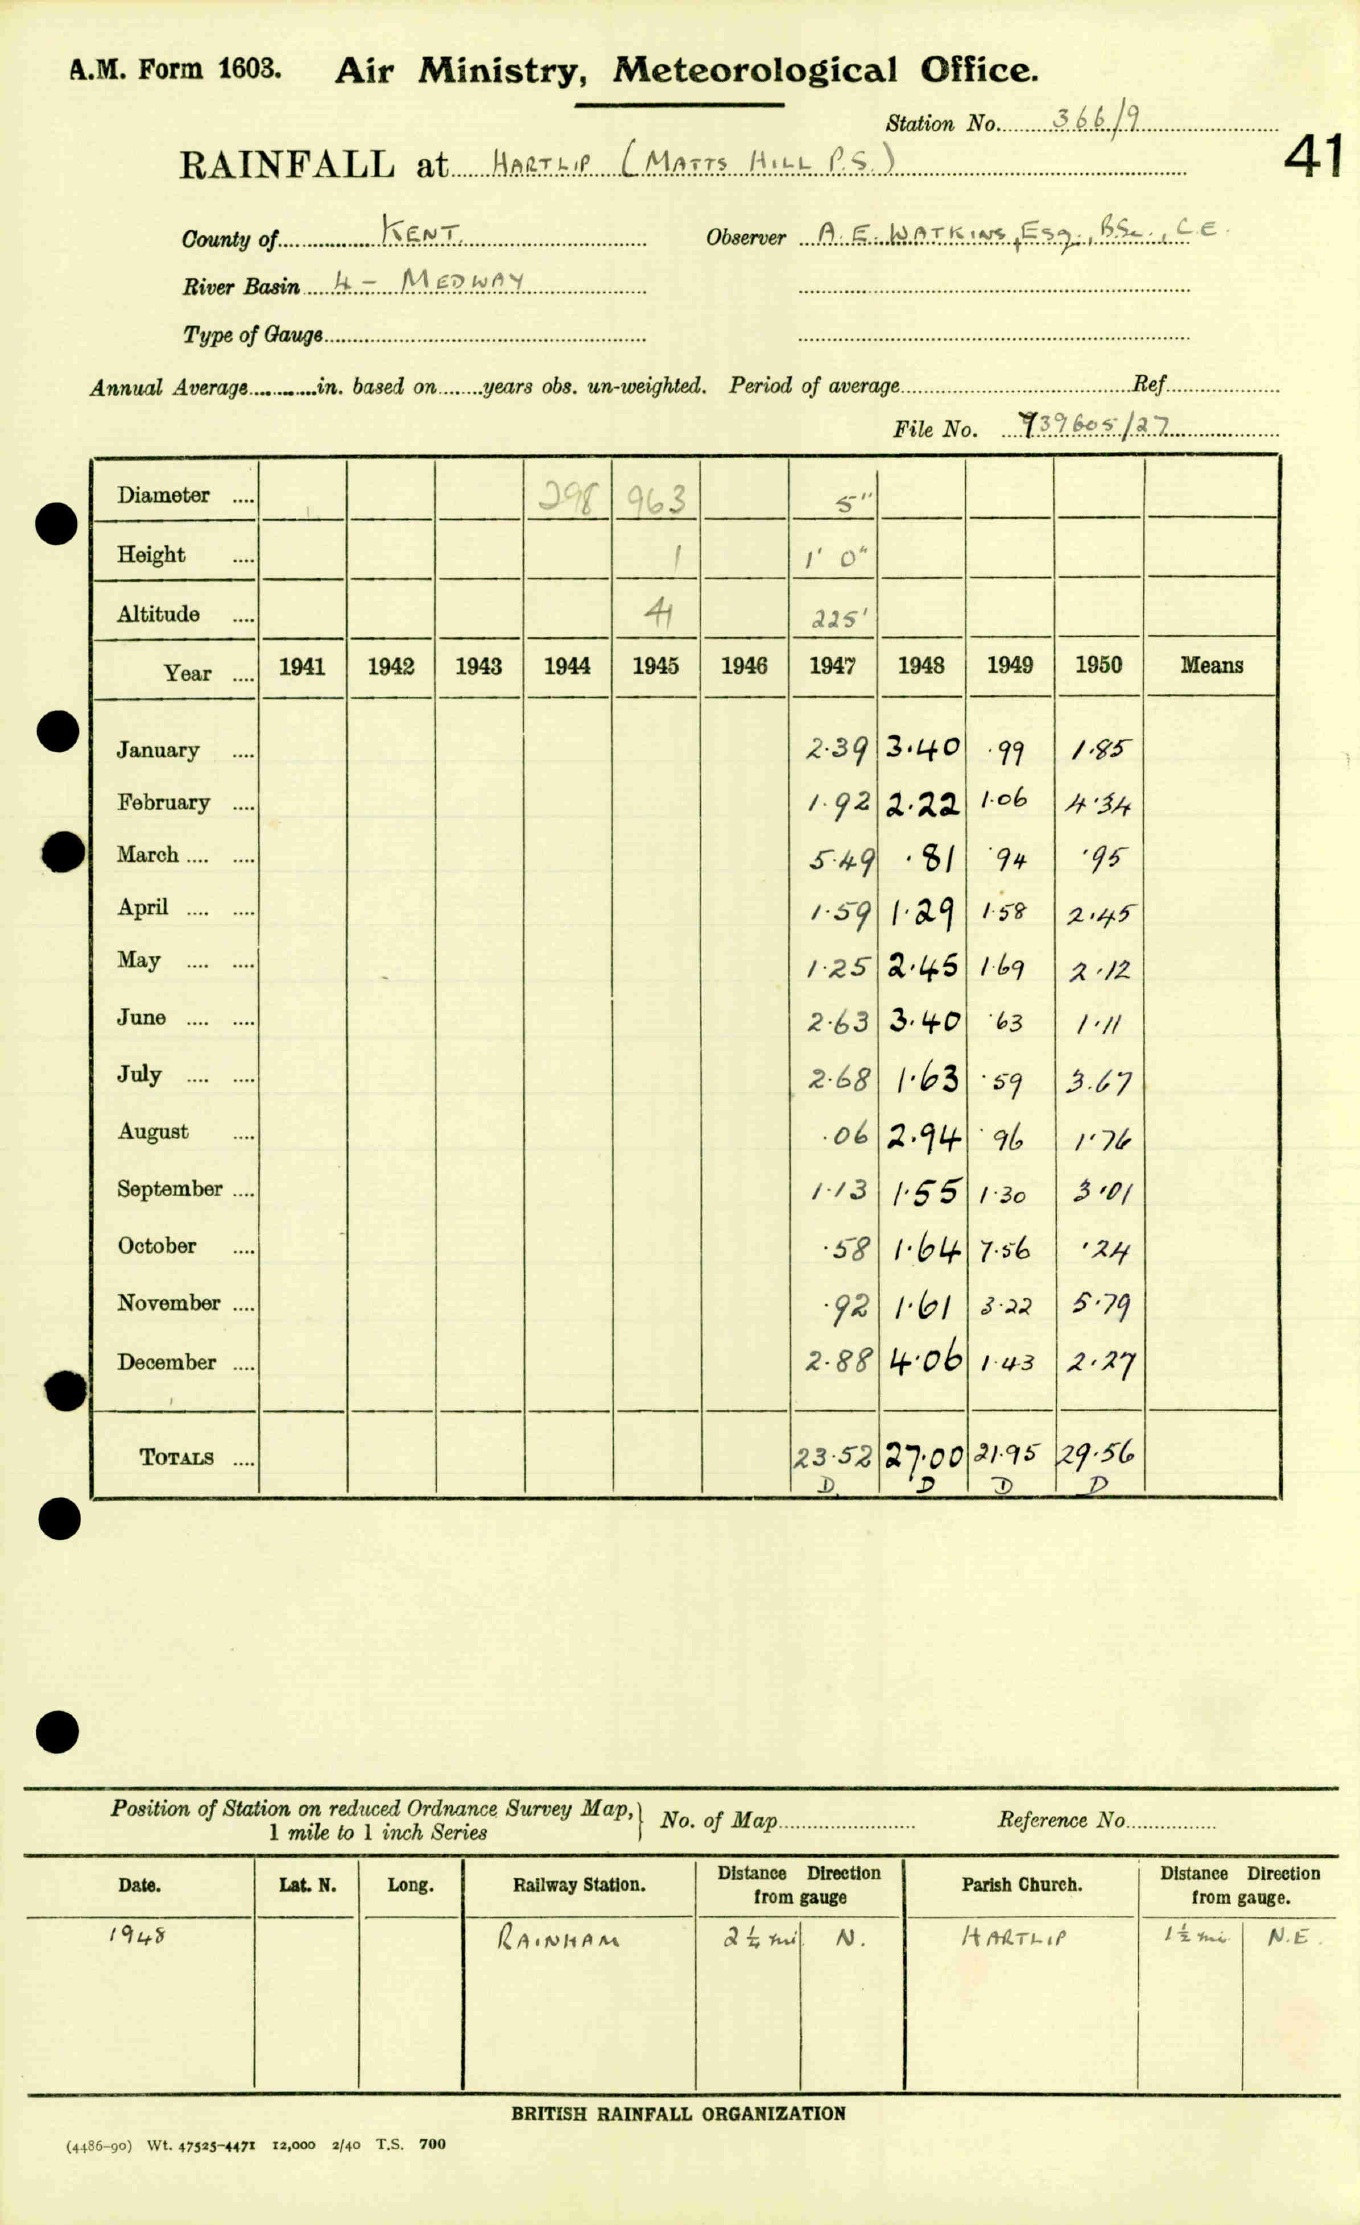 A.M. Form 1603. Air Ministry, Meteorological Office.
Station No. 366/9
RAINFALL at HARTLIP (MATTS HILL P.S.)
41
County of KENT. Observer A. E. WATKINS, Esq., B.Sc., C.E.
River Basin 4 - MEDWAY
Type of Gauge
Annual Average in. based on years obs. un-weighted. Period of average Ref
File No. 939605/27
Diameter .... 298 963 5"
Height .... 1 1' 0"
Altitude .... 41 225'
Year .... 1941 1942 1943 1944 1945 1946 1947 1948 1949 1950 Means
January .... 2.39 3.40 .99 1.85
February .... 1.92 2.22 1.06 4.34
March .... .... 5.49 .81 .94 .95
April .... .... 1.59 1.29 1.58 2.45
May .... .... 1.25 2.45 1.69 2.12
June .... .... 2.63 3.40 .63 1.11
July .... .... 2.68 1.63 .59 3.67
August .... .06 2.94 .96 1.76
September .... 1.13 1.55 1.30 3.01
October .... .58 1.64 7.56 .24
November .... .92 1.61 3.22 5.79
December .... 2.88 4.06 1.43 2.27
TOTALS .... 23.52 27.00 21.95 29.56
D D D D
Position of Station on reduced Ordnance Survey Map, 1 mile to 1 inch Series } No. of Map Reference No.
Date. Lat. N. Long. Railway Station. Distance Direction from gauge Parish Church. Distance Direction from gauge.
1948 RAINHAM 2 1/4 mi N. HARTLIP 1 1/2 mi. N.E.
BRITISH RAINFALL ORGANIZATION
(4486-90) Wt. 47525-4471 12,000 2/40 T.S. 700